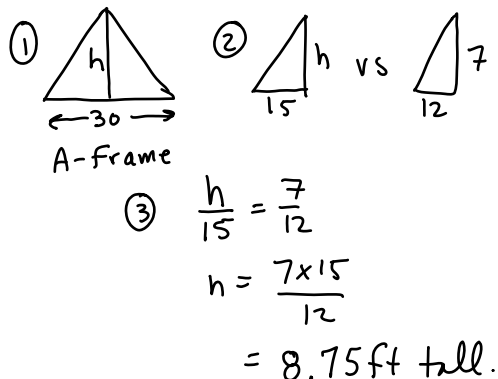 ① h 30
A-Frame
② h 15 vs 7 12
③ h/15 = 7/12
h = 7×15/12
= 8.75ft tall.